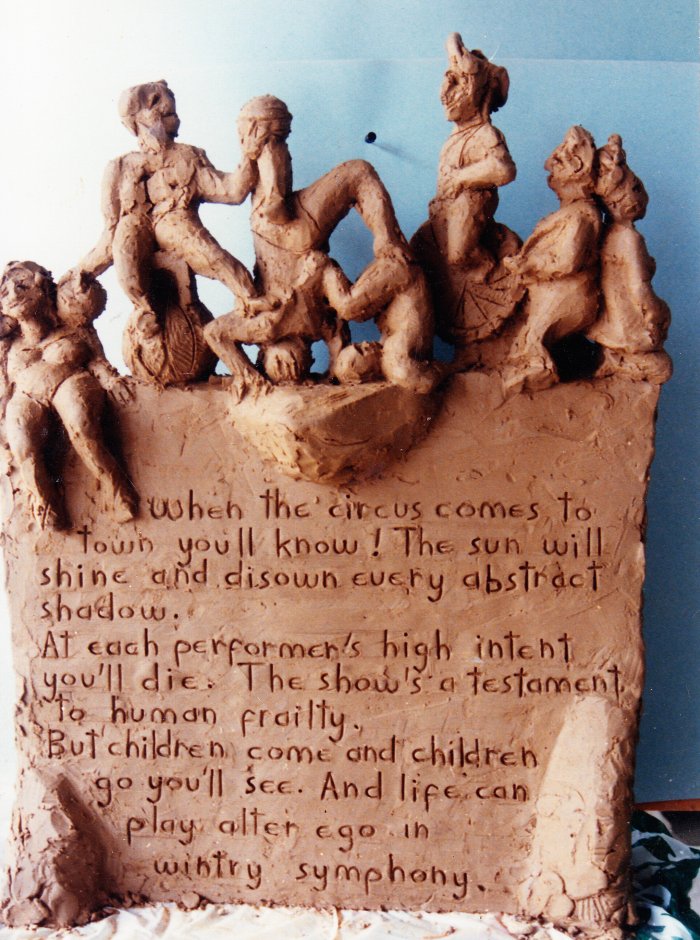 When the circus comes to
town you'll know! The sun will
shine and disown every abstract
shadow.
At each performer's high intent
you'll die. The show's a testament
to human frailty.
But children come and children
go you'll see. And life can
play alter ego in
wintry symphony.